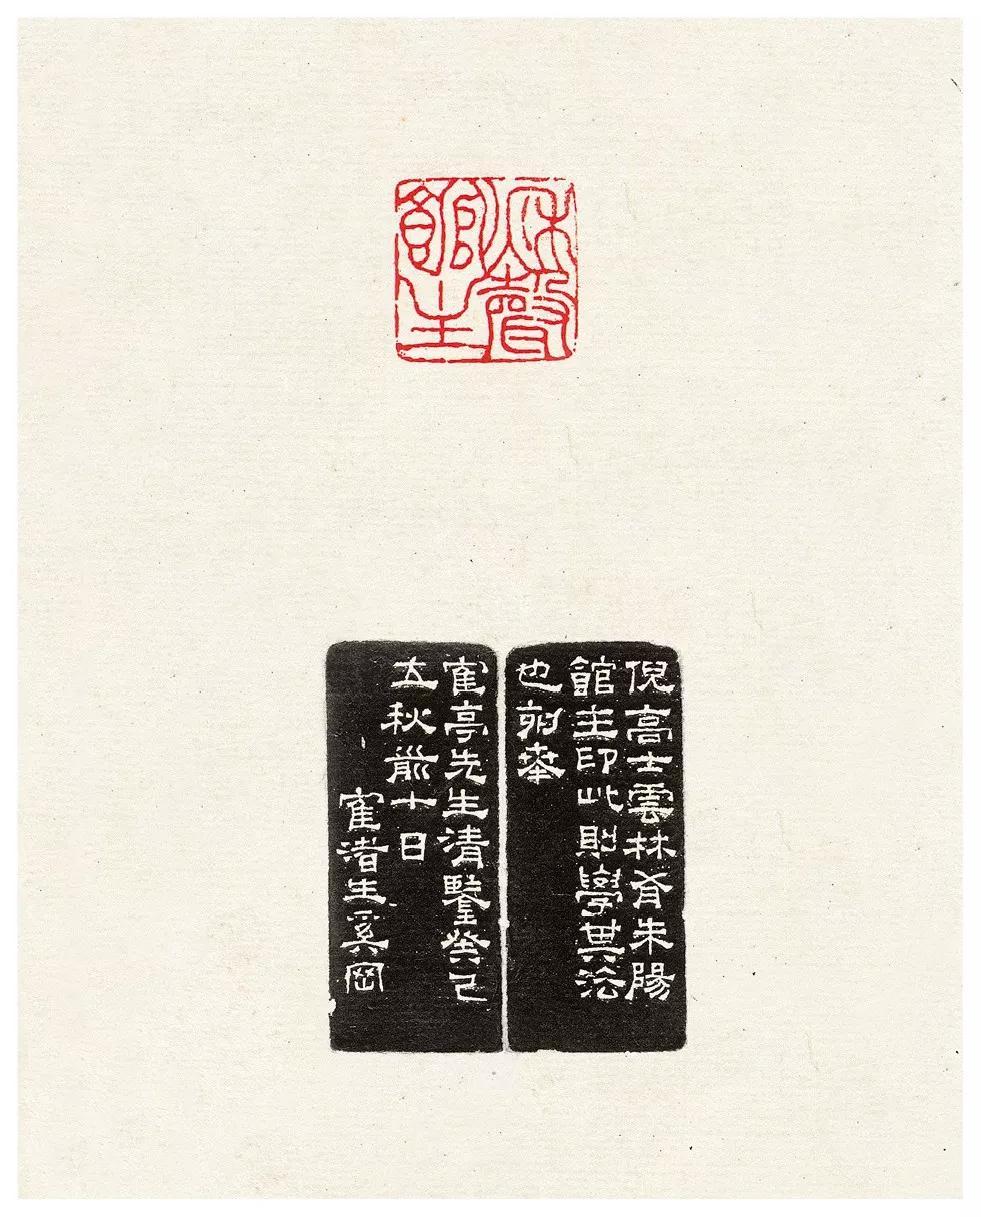 秋聲
館主
倪高士雲林有朱陽
館主印此則學其法
也刻奉
隺亭先生清鑒癸巳
立秋前十日
隺渚生奚岡